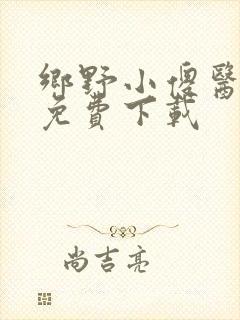 鄉野小傻醫
免費下載
尚吉亮